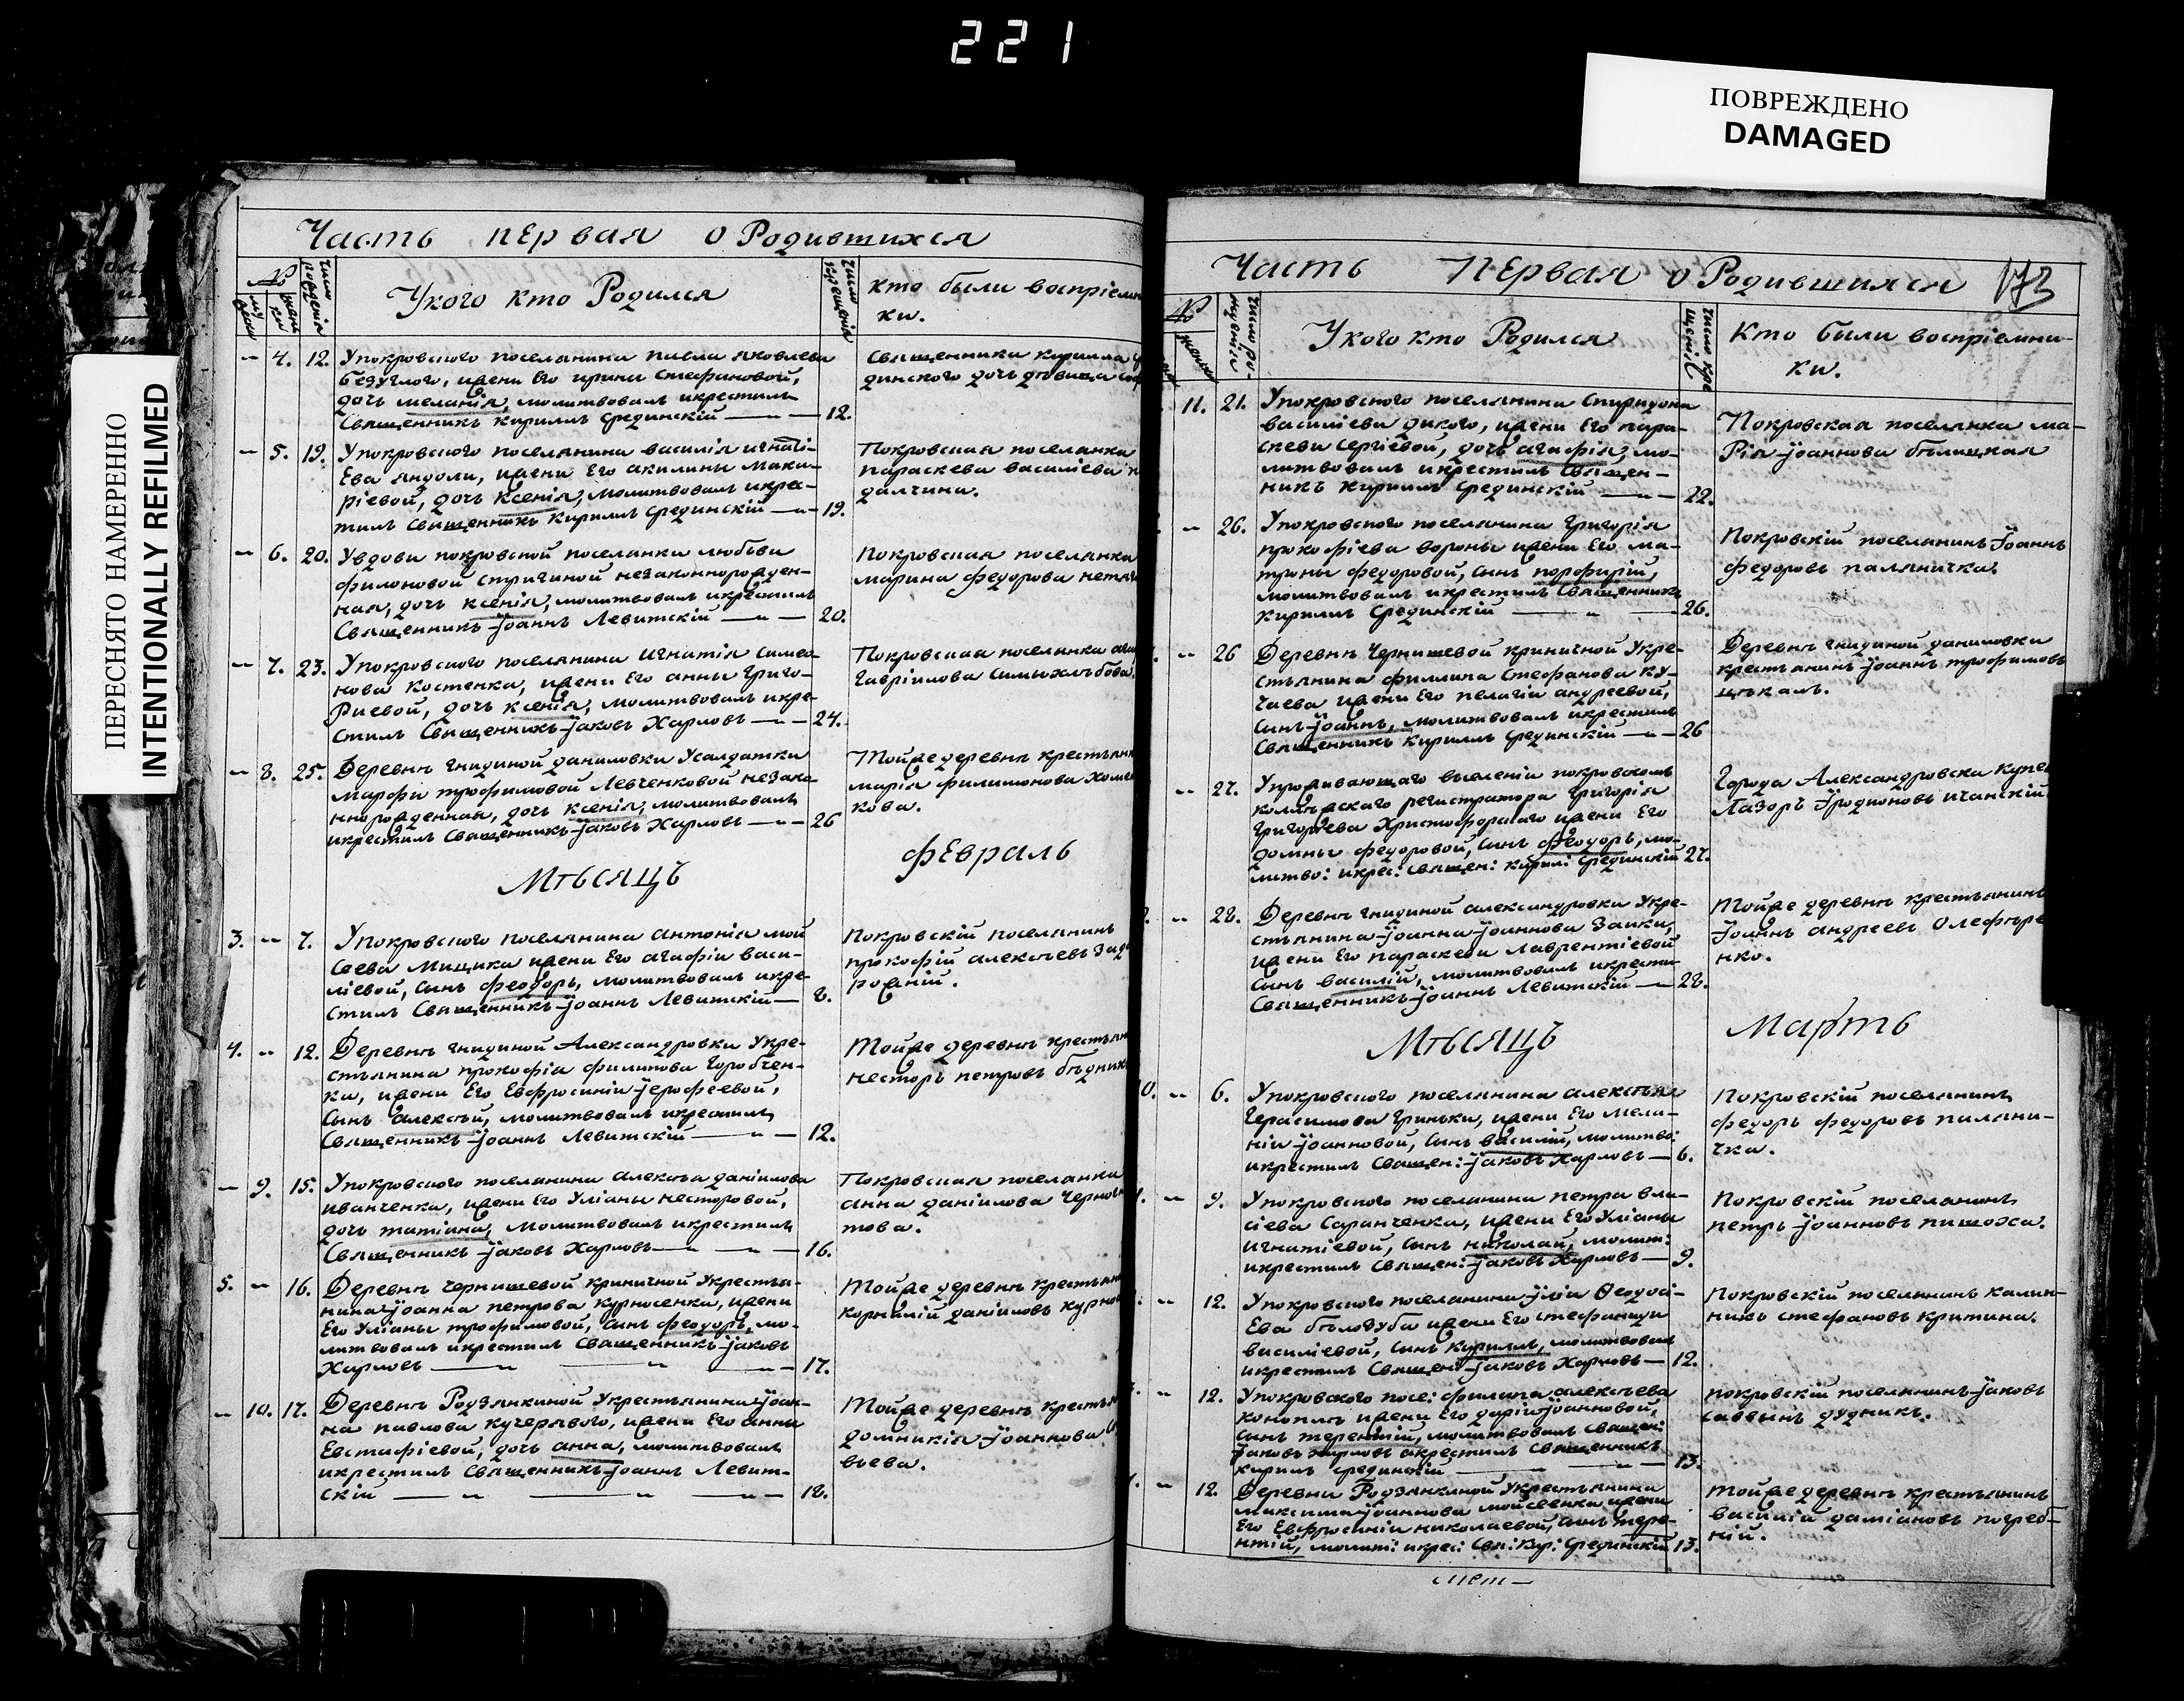 221
ПОВРЕЖДЕНО
DAMAGED
ПЕРЕСНЯТО НАМЕРЕННО
INTENTIONALLY REFILMED
Часть первая о Родившихся
№
Число рождения
Укого кто Родился
Число крещенія
кто были воспріемни
ки.
— 4. 12. Упокровского поселянина павла яковлева
безуглого, ижени Его ирины Стефановой,
дочь меланія, молитвовалъ икрестилъ
Священникъ кириллъ Срединскій — 12.
Священника кирилла
динского дочь девица
— 5. 19. Упокровского поселянина василія игнаті-
Ева яндоли, ижени Его акилины мака-
ріевой, дочь ксенія, молитвовалъ икрес-
тилъ Священникъ кириллъ Срединскій — 19.
Покровская поселянка
параскева василіева
далчина.
— 6. 20. Увдовы покровской поселянки любови
филоновой Стригиной незаконнорожден-
ная, дочь ксенія, молитвовалъ икрестилъ
Священникъ Іоаннъ Левитскій — 20.
Покровская поселянка
марина федорова
— 7. 23. Упокровского поселянина игнатія симео-
нова Костенка, ижени Его анны Григо-
Риевой, дочь ксенія, молитвовалъ икре-
стилъ Священникъ Іаковъ Харловъ — 24.
Покровская поселянка
Гавріилова
— 8. 25. Деревни гнидиной даниловки Усалдатки
марфы трофимовой Левченковой незако
ннорожденная, дочь ксенія, молитвовалъ
икрестилъ Священникъ Іаковъ Харловъ — 26
Тойже деревни
марія филимонова
кова.
Мѣсяцъ Февраль
3. — 7. Упокровского поселянина антонія мой
Сеева Мищика ижени Его агафіи васи-
ліевой, сынъ феодоръ, молитвовалъ икре-
стилъ Священникъ Іоаннъ Левитскій — 8.
Покровскій поселянинъ
прокофій алексѣевъ
рожній.
4. — 12. Деревни гнидиной Александровки Укре-
стьянина прокофія филипова Горобчен-
ка, ижени Его Евфросиніи Іерофеевой,
Сынъ алексѣй, молитвовалъ икрестилъ
Священникъ Іоаннъ Левитскій — 12.
Тойже деревни
несторъ петровъ
— 9. 15. Упокровского поселянина алексѣа даніилова
иванченка, ижени Его Уліаны несторовой,
дочь татіана, молитвовалъ икрестилъ
Священникъ Іаковъ Харловъ — 16.
Покровская поселянка
анна даніилова
това.
5. — 16. Деревни чернишевой криничной Укрестья-
нина Іоанна петрова Курносенка, ижени
Его Уліаны трофимовой, сынъ феодоръ, мо-
литвовалъ икрестилъ Священникъ Іаковъ
Харловъ — 17.
Тойже деревни
корнилій даніиловъ
— 10. 17. Деревни Родзянкиной Укрестьянина Іоан-
на павлова кучерявого, ижени Его анны
Евстафіевой, дочь анна, молитвовалъ
икрестилъ Священникъ Іоаннъ Левит-
скій — 18.
Тойже деревни
домникія Іоаннова
вьева.
Часть Первая о Родившихся 173
№
Укого кто Родился
Кто были воспріемни-
ки.
11. 21. Упокровского поселянина Спиридона
василіева дикого, ижени Его пара-
скеви Сергіевой, дочь агафія, мо-
литвовалъ икрестилъ Священ-
никъ кириллъ Срединскій — 22.
Покровская поселянка ма-
Рія Іоаннова бѣлицкая
— 26. Упокровского поселянина Григорія
прокофіева вороны ижени Его ма-
троны федоровой, Сынъ порфирій,
молитвовалъ икрестилъ Священникъ
кириллъ Срединскій — 26.
Покровскій поселянинъ Іоаннъ
федоровъ паляничка.
— 26 Деревни Чернишевой криничной Укре-
стьянина филипа Стефанова ку-
чаева ижени Его пелагіи андреевой,
Сынъ Іоаннъ, молитвовалъ икрестилъ
Священникъ кириллъ Срединскій — 26
Деревни гнидиной даниловки
крестьянинъ Іоаннъ трофимовъ
— 27. Упроживающаго вселеніи покровскомъ
регистратора Григорія
Григоріева Христофорского ижени Его
домны федоровой, Сынъ феодоръ, мо-
литво: икрес: Священ: кирил: Срединскій 27.
Города Александровска
Лазоръ Іродионовъ
— 28. Деревни гнидиной александровки Укре-
стьянина Іоанна Іоаннова Заики,
ижени Его параскеви Лаврентіевой
Сынъ василій, молитвовалъ икрести
Священникъ Іоаннъ Левитскій — 28.
Тойже деревни крестьянинъ
Іоаннъ андреевъ Олефѣре
нко.
Мѣсяцъ Мартъ
— 6. Упокровского поселянина алексѣя
Герасимова Гриньки, ижени Его мела-
ніи Іоанновой, Сынъ василій, молитво:
икрестилъ Священ: Іаковъ Харловъ — 6.
Покровскій поселянинъ
федоръ федоровъ паляни-
чка.
— 9. Упокровского поселянина петра вла-
сіева Саранченка, ижени Его Уліаны
игнатіевой, Сынъ николай, молит:
икрестилъ Священ: Іаковъ Харловъ — 9.
Покровскій поселянинъ
петръ Іоанновъ пишоха.
— 12. Упокровского поселянина Іліи Ѳеодосі-
Ева бѣлодуба ижени Его стефаниди
василіевой, Сынъ кириллъ, молитвовалъ
икрестилъ Священ: Іаковъ Харловъ — 12.
Покровскій поселянинъ калин-
никъ стефановъ критина.
— 12. Упокровского посе: филипа алексѣева
коноплі ижени Его даріи Іоанновой,
Сынъ терентій, молитвовалъ Священ:
Іаковъ Харловъ окрестилъ Священникъ
кирилъ Срединскій — 13.
покровскій поселянинъ Іаковъ
саввынъ дудникъ.
— 12. Деревни Родзянкиной Укрестьянина
максима Іоаннова мойсеенка ижени
Его Евфросиніи николаевой, Сынъ тере-
нтій, молит: икрес: Свя: Кир: Срединскій 13.
тойже деревни крестьянинъ
василій даміановъ погреб-
ній.